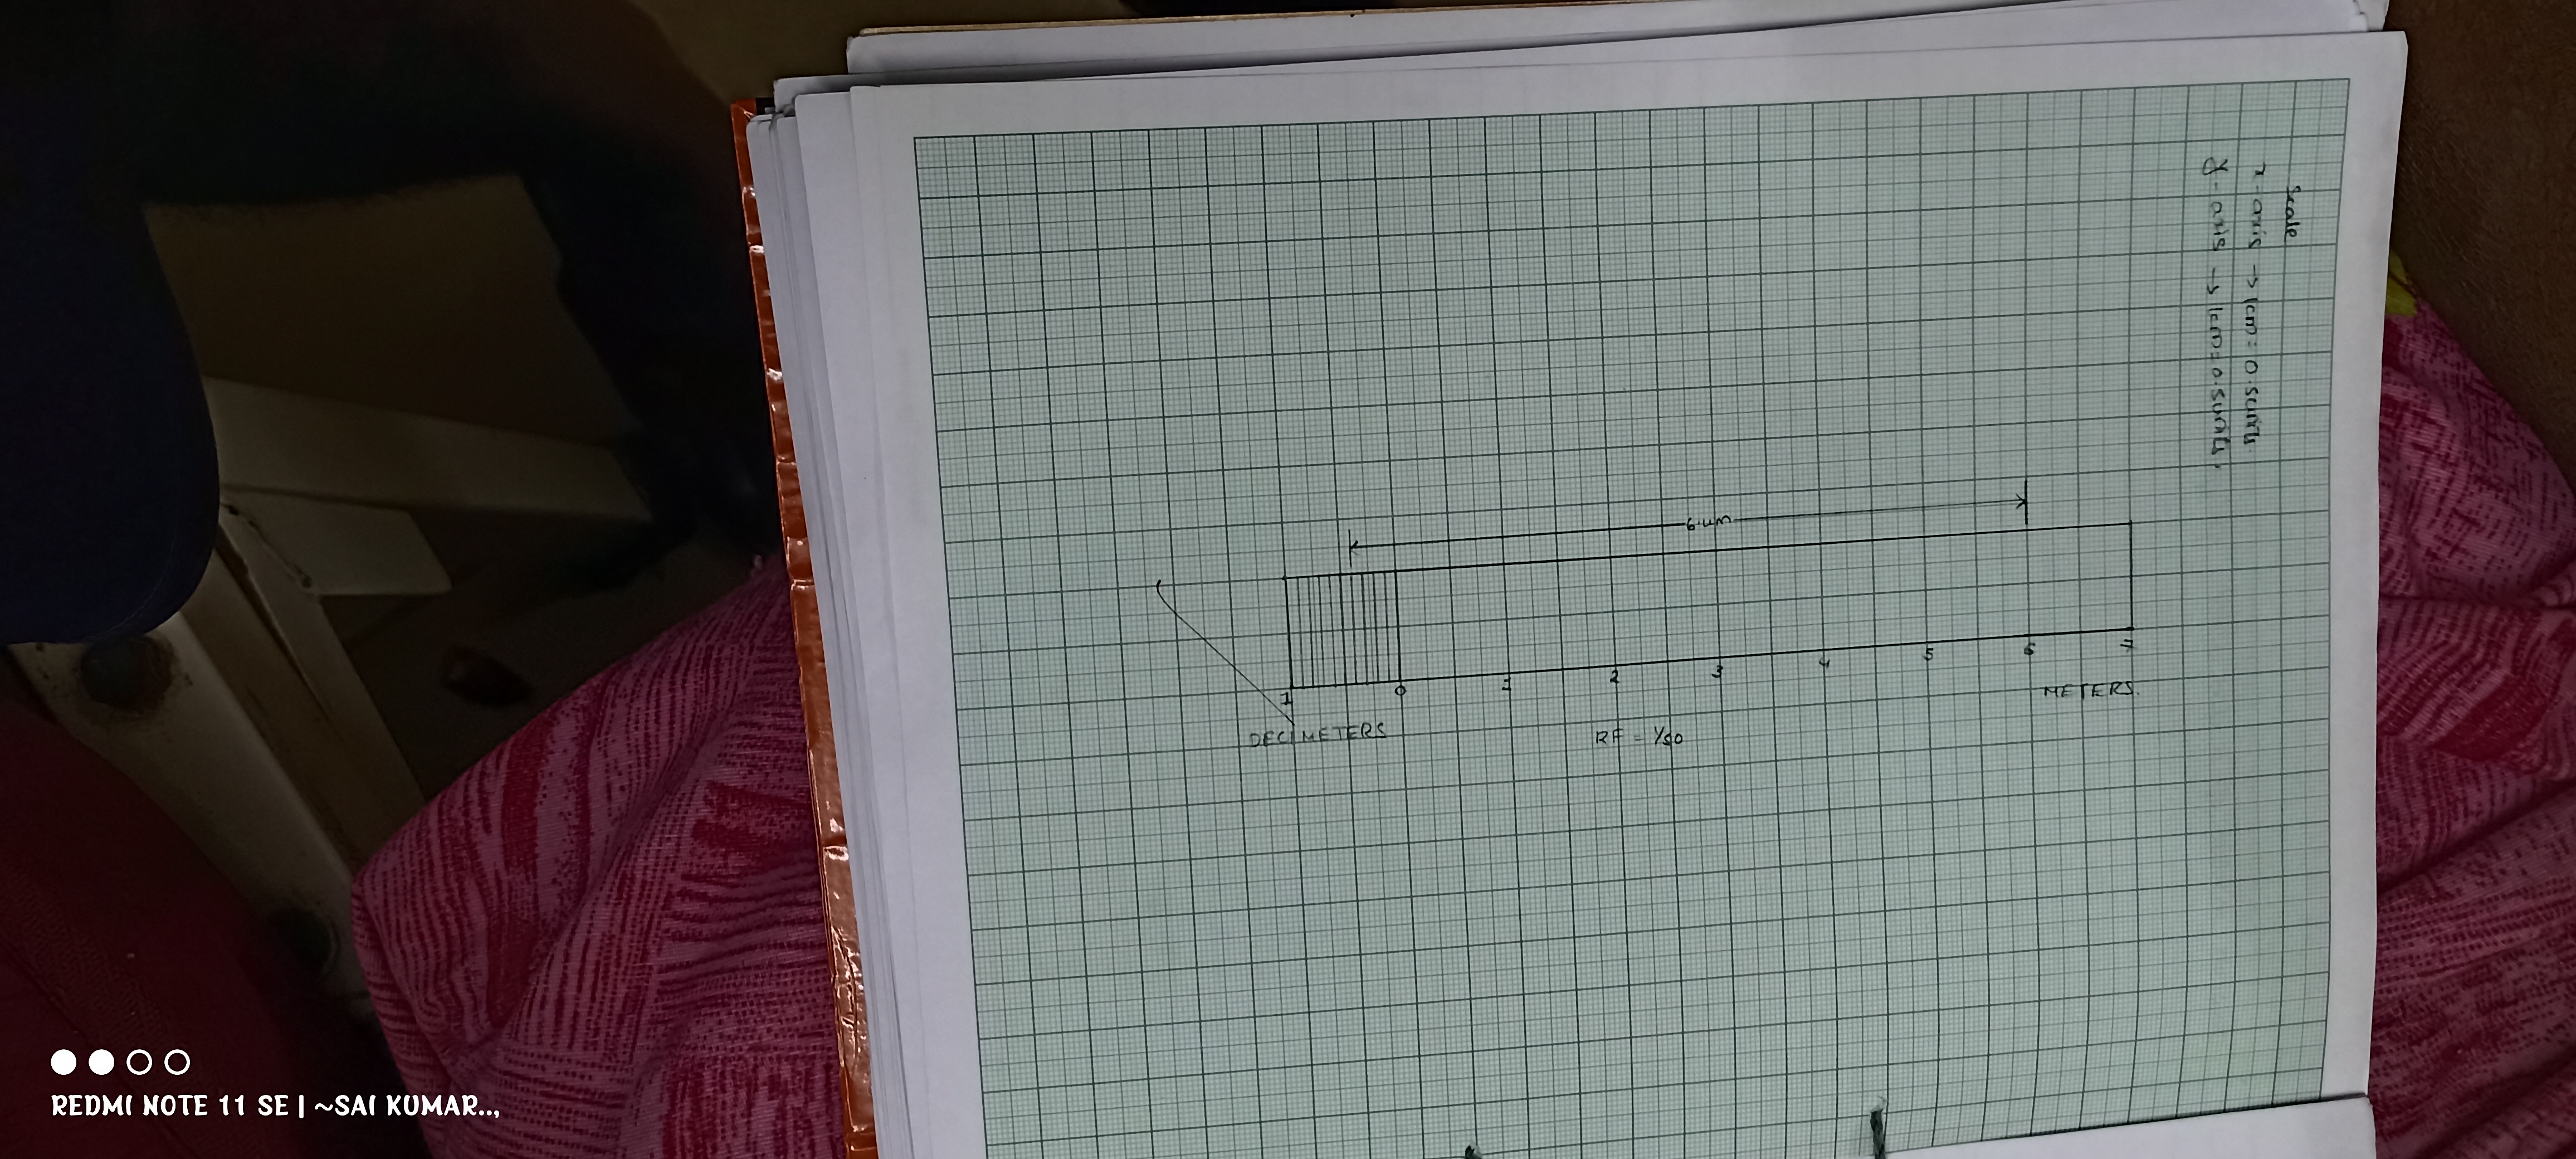 Scale
x-axis → 1cm = 0.5units
y-axis → 1cm = 0.5units,
6.4m
1 0 1 2 3 4 5 6 7
DECIMETERS RF = 1/50 METERS.
REDMI NOTE 11 SE | ~SAI KUMAR..,